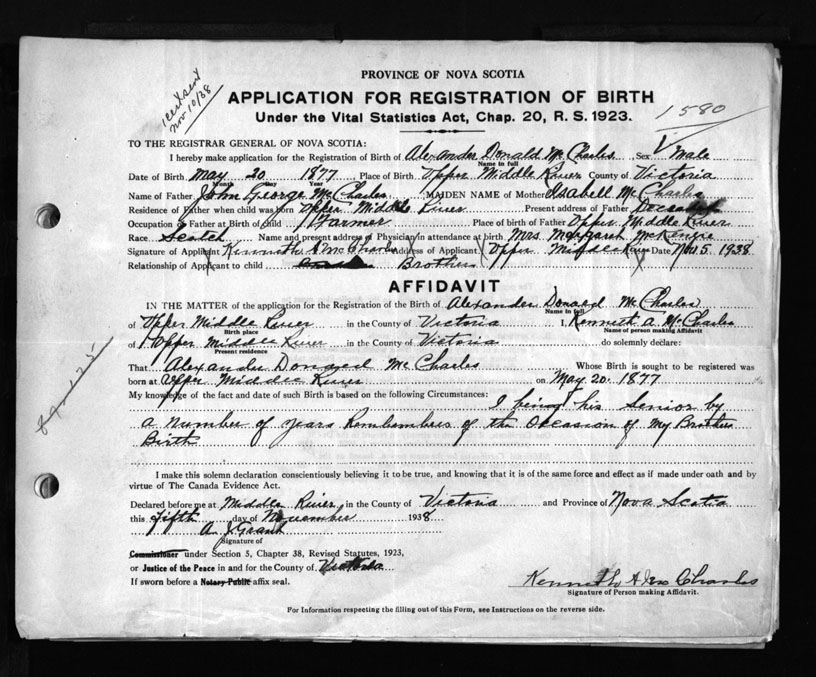 1 cert sent
Nov 10/38
PROVINCE OF NOVA SCOTIA
APPLICATION FOR REGISTRATION OF BIRTH
Under the Vital Statistics Act, Chap. 20, R. S. 1923.
1580
TO THE REGISTRAR GENERAL OF NOVA SCOTIA:
I hereby make application for the Registration of Birth of Alexander Donald McCharles Sex Male
Name in full
Date of Birth May 20 1877 Place of Birth Upper Middle River County of Victoria
Month Day Year
Name of Father John George McCharles MAIDEN NAME of Mother Isabell McCharles
Residence of Father when child was born Upper Middle River Present address of Father
Occupation of Father at Birth of child Farmer Place of birth of Father Upper Middle River
Race Scotch Name and present address of Physician in attendance at birth Mrs Margarah McKenzie
Signature of Applicant Kenneth A McCharles Address of Applicant Upper Middle River Date Nov. 5. 1938
Relationship of Applicant to child Brother
AFFIDAVIT
IN THE MATTER of the application for the Registration of the Birth of Alexander Donald McCharles
Name in full
of Upper Middle River in the County of Victoria I, Kenneth A McCharles
Birth place Name of person making Affidavit
of Upper Middle River in the County of Victoria do solemnly declare:
Present residence
That Alexander Donald McCharles Whose Birth is sought to be registered was
born at Upper Middle River on May 20. 1877
My knowledge of the fact and date of such Birth is based on the following Circumstances: I being his Senior by
a number of years Remembers of the Occasion of My Brothers
Birth
I make this solemn declaration conscientiously believing it to be true, and knowing that it is of the same force and effect as if made under oath and by
virtue of The Canada Evidence Act.
Declared before me at Middle River in the County of Victoria and Province of Nova Scotia
this Fifth day of November 1938
A J Grant
Signature of
Commissioner under Section 5, Chapter 38, Revised Statutes, 1923,
or Justice of the Peace in and for the County of Victoria
If sworn before a Notary Public affix seal.
Kenneth A McCharles
Signature of Person making Affidavit.
For Information respecting the filling out of this Form, see Instructions on the reverse side.